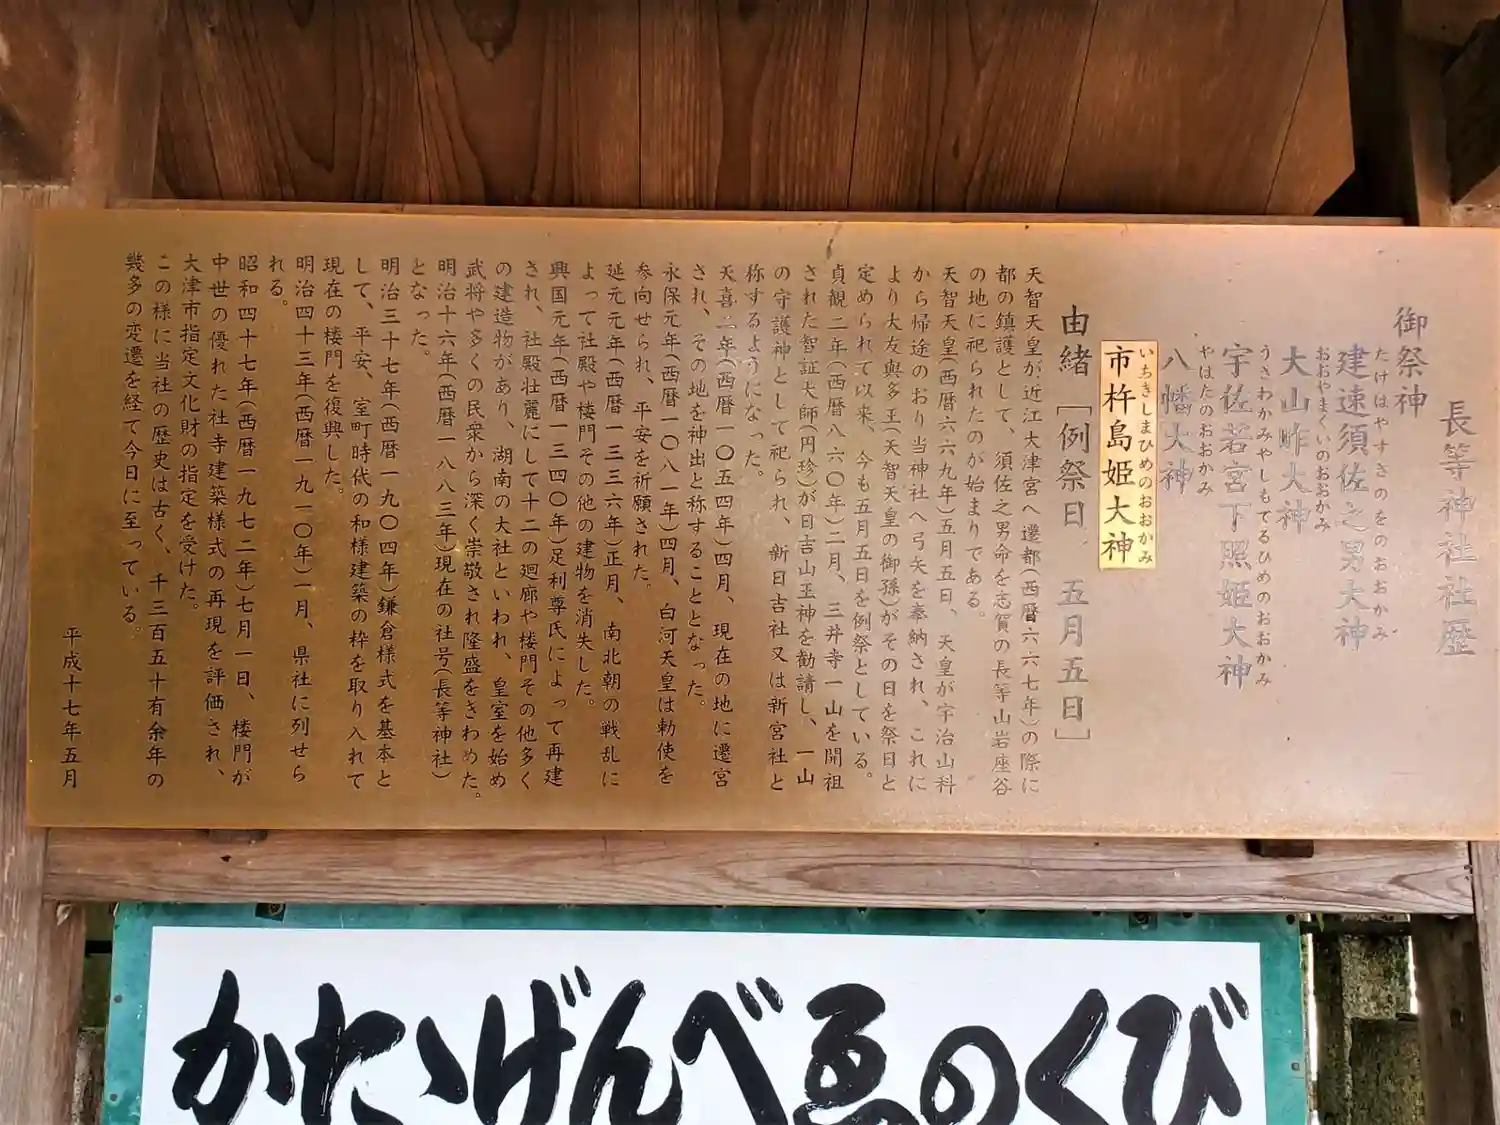 長等神社社歴
御祭神
たけはやすさのをのおおかみ
建速須佐之男大神
おおやまくいのおおかみ
大山咋大神
うさわかみやしもてるひめのおおかみ
宇佐若宮下照姫大神
やはたのおおかみ
八幡大神
いちきしまひめのおおかみ
市杵島姫大神
由緒［例祭日　五月五日］
天智天皇が近江大津宮へ遷都(西暦六六七年)の際に
都の鎮護として、須佐之男命を志賀の長等山岩座谷
の地に祀られたのが始まりである。
天智天皇(西暦六六九年)五月五日、天皇が宇治山科
から帰途のおり当神社へ弓矢を奉納され、これに
より大友與多王(天智天皇の御孫)がその日を祭日と
定められて以来、今も五月五日を例祭としている。
貞観二年(西暦八六〇年)二月、三井寺一山を開祖
された智証大師(円珍)が日吉山王神を勧請し、一山
の守護神として祀られ、新日吉社又は新宮社と
称するようになった。
天喜二年(西暦一〇五四年)四月、現在の地に遷宮
され、その地を神出と称することとなった。
永保元年(西暦一〇八一年)四月、白河天皇は勅使を
参向せられ、平安を祈願された。
延元元年(西暦一三三六年)正月、南北朝の戦乱に
よって社殿や楼門その他の建物を消失した。
興国元年(西暦一三四〇年)足利尊氏によって再建
され、社殿壮麗にして十二の廻廊や楼門その他多く
の建造物があり、湖南の大社といわれ、皇室を始め
武将や多くの民衆から深く崇敬され隆盛をきわめた。
明治十六年(西暦一八八三年)現在の社号(長等神社)
となった。
明治三十七年(西暦一九〇四年)鎌倉様式を基本と
して、平安、室町時代の和様建築の枠を取り入れて
現在の楼門を復興した。
明治四十三年(西暦一九一〇年)一月、県社に列せら
れる。
昭和四十七年(西暦一九七二年)七月一日、楼門が
中世の優れた社寺建築様式の再現を評価され、
大津市指定文化財の指定を受けた。
この様に当社の歴史は古く、千三百五十有余年の
幾多の変遷を経て今日に至っている。
平成十七年五月
かたゝげんべゑのくび